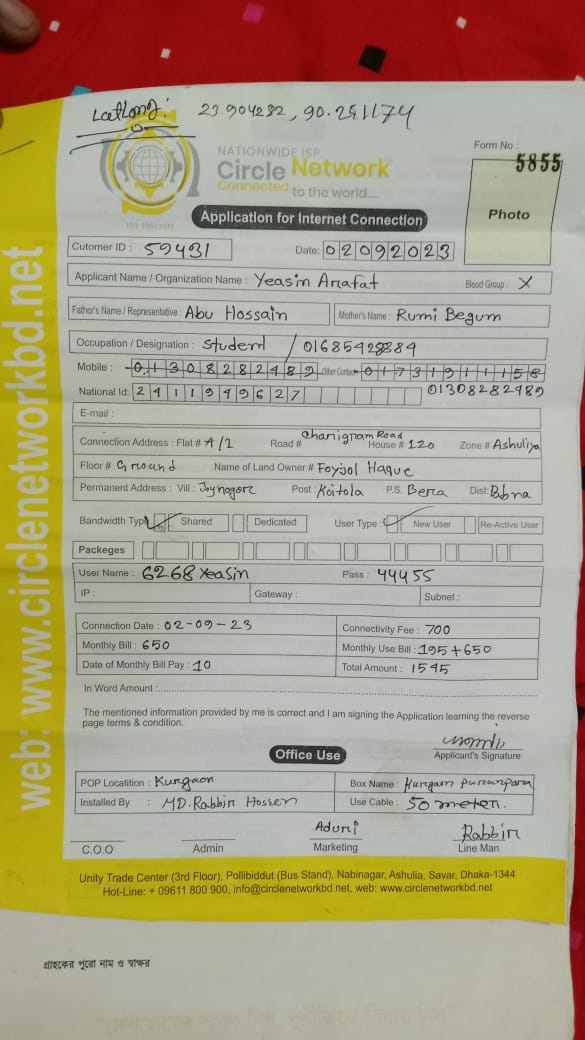 23.904232, 90.251174
NATIONWIDE ISP
Circle Network
Connected to the world....
ISO 9001:2015
Form No :
5855
Photo
Application for Internet Connection
Cutomer ID : 59431 Date: 02092023
Applicant Name / Organization Name : Yeasin Arafat Blood Group : X
Father's Name / Representative : Abu Hossain Mother's Name : Rumi Begum
Occupation / Designation : Student / 01685428884
Mobile : 01308282489 Other Contact 01731911158
National Id: 2411949627 01308282489
E-mail :
Connection Address : Flat # A/1 Road # Charigram Road House # 120 Zone # Ashuliya
Floor # Ground Name of Land Owner # Foysol Haque
Permanent Address : Vill : Joynogor Post : Koitola P.S. Bera Dist: Pabna
Bandwidth Type Shared Dedicated User Type : New User Re-Active User
Packeges
User Name : 6268 Yeasin Pass : 44455
IP : Gateway : Subnet :
Connection Date : 02-09-23 Connectivity Fee : 700
Monthly Bill : 650 Monthly Use Bill : 195+650
Date of Monthly Bill Pay : 10 Total Amount : 1545
In Word Amount :
The mentioned information provided by me is correct and I am signing the Application learning the reverse
page terms & condition.
Applicant's Signature
Office Use
POP Locatition : Kurgaon Box Name : Kurgaon puranpara
Installed By : MD. Rabbir Hossen Use Cable : 50 meter.
Aduri Rabbir
C.O.O Admin Marketing Line Man
Unity Trade Center (3rd Floor), Pollibiddut (Bus Stand), Nabinagar, Ashulia, Savar, Dhaka-1344
Hot-Line: + 09611 800 900, info@circlenetworkbd.net, web: www.circlenetworkbd.net
web: www.circlenetworkbd.net
গ্রাহকের পুরো নাম ও স্বাক্ষর